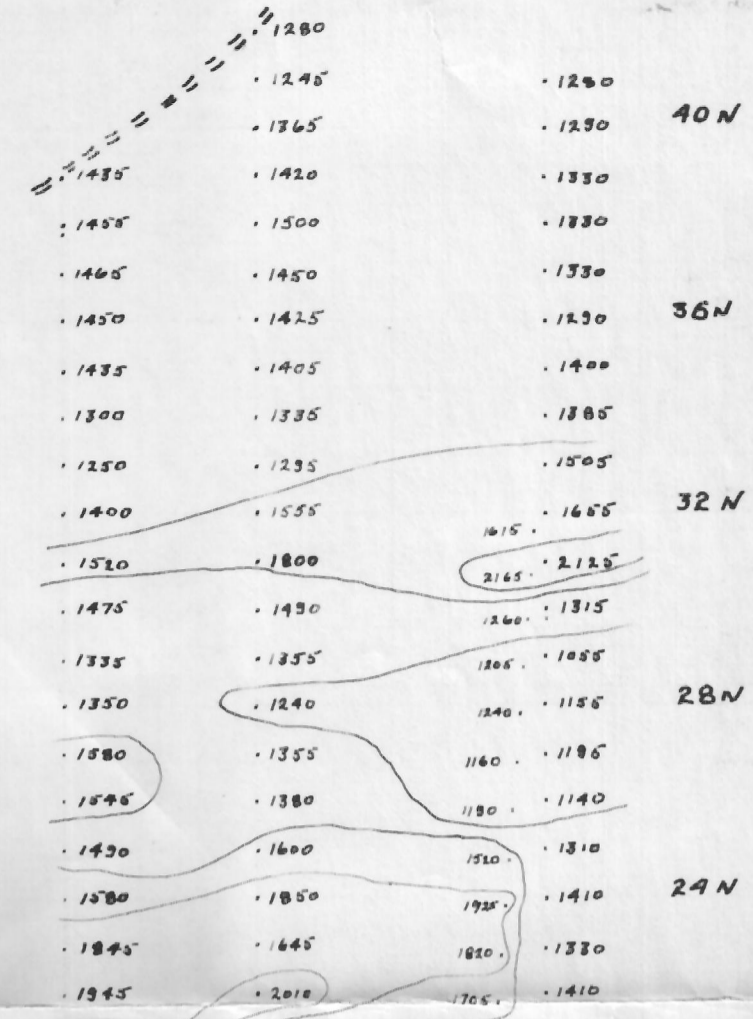 1280
1245 1280
40 N
1365 1290
1435 1420 1330
1455 1500 1330
1465 1450 1330
1450 1425 1290 36N
1435 1405 1400
1300 1335 1385
1250 1295 1505
1400 1555 1655 32 N
1615
1520 1800 2125
2165
1475 1490 1315
1260
1335 1355 1055
1205
1350 1240 1155 28 N
1240
1580 1355 1195
1160
1545 1380 1140
1190
1490 1600 1310
1520
1580 1850 1410 24 N
1925
1845 1645 1330
1820
1945 2010 1410
1705